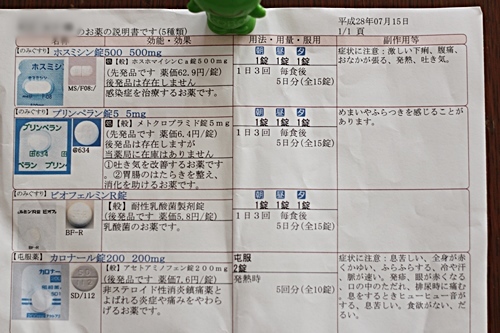 のお薬の説明書です(5種類)
平成28年07月15日
1/1 頁
名称 効能・効果 用法・用量・服用 副作用等
【のみぐすり】ホスミシン錠500 500mg
ホスミシン
MS/F08:
【般】ホスホマイシンCa錠500mg
(先発品です 薬価62.9円/錠)
後発品は存在しません
感染症を治療するお薬です。
朝 昼 夕
1錠 1錠 1錠
1日3回 毎食後
5日分(全15錠)
症状に注意:激しい下痢、腹痛、
おなかが張る、発熱、吐き気。
【のみぐすり】プリンペラン錠5 5mg
プリンペラン
田634
ペラン プリン
@634
【般】メトクロプラミド錠5mg
(先発品です 薬価6.4円/錠)
後発品は存在しますが
当薬局に在庫はありません
①吐き気を改善するお薬です。
②胃腸のはたらきを整え、
消化を助けるお薬です。
朝 昼 夕
1錠 1錠 1錠
1日3回 毎食後
5日分(全15錠)
めまいやふらつきを感じることが
あります。
【のみぐすり】ビオフェルミンR錠
BF-R
【般】耐性乳酸菌製剤錠
(後発品です 薬価5.8円/錠)
乳酸菌のお薬です。
朝 昼 夕
1錠 1錠 1錠
1日3回 毎食後
5日分(全15錠)
【屯服薬】カロナール錠200 200mg
カロナール
200
SD/112
【般】アセトアミノフェン錠200mg
(後発品です 薬価7.6円/錠)
非ステロイド性消炎鎮痛薬と
よばれる炎症や痛みをやわらげ
るお薬です。
屯服
2錠
発熱時
5回分(全10錠)
症状に注意:息苦しい、全身が赤
くかゆい、ふらふらする、冷や汗
、脈が速い、発疹、眼が赤くなる
、口の中のただれ、排尿時に痛む
、息をするときヒューヒュー音が
する、息苦しい、食欲がない、だ
るい。